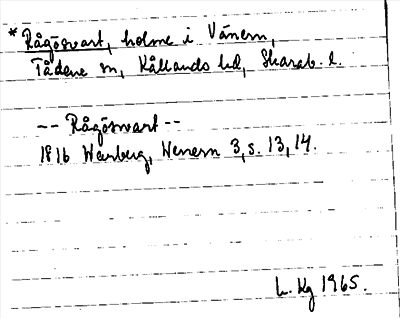 *Rågösvart, holme i Vänern,
Tådene sn, Kållands hd, Skarab. l.
-- Rågösvart --
1816 Warberg, Wenern 3, s. 13, 14.
L. Kg 1965.